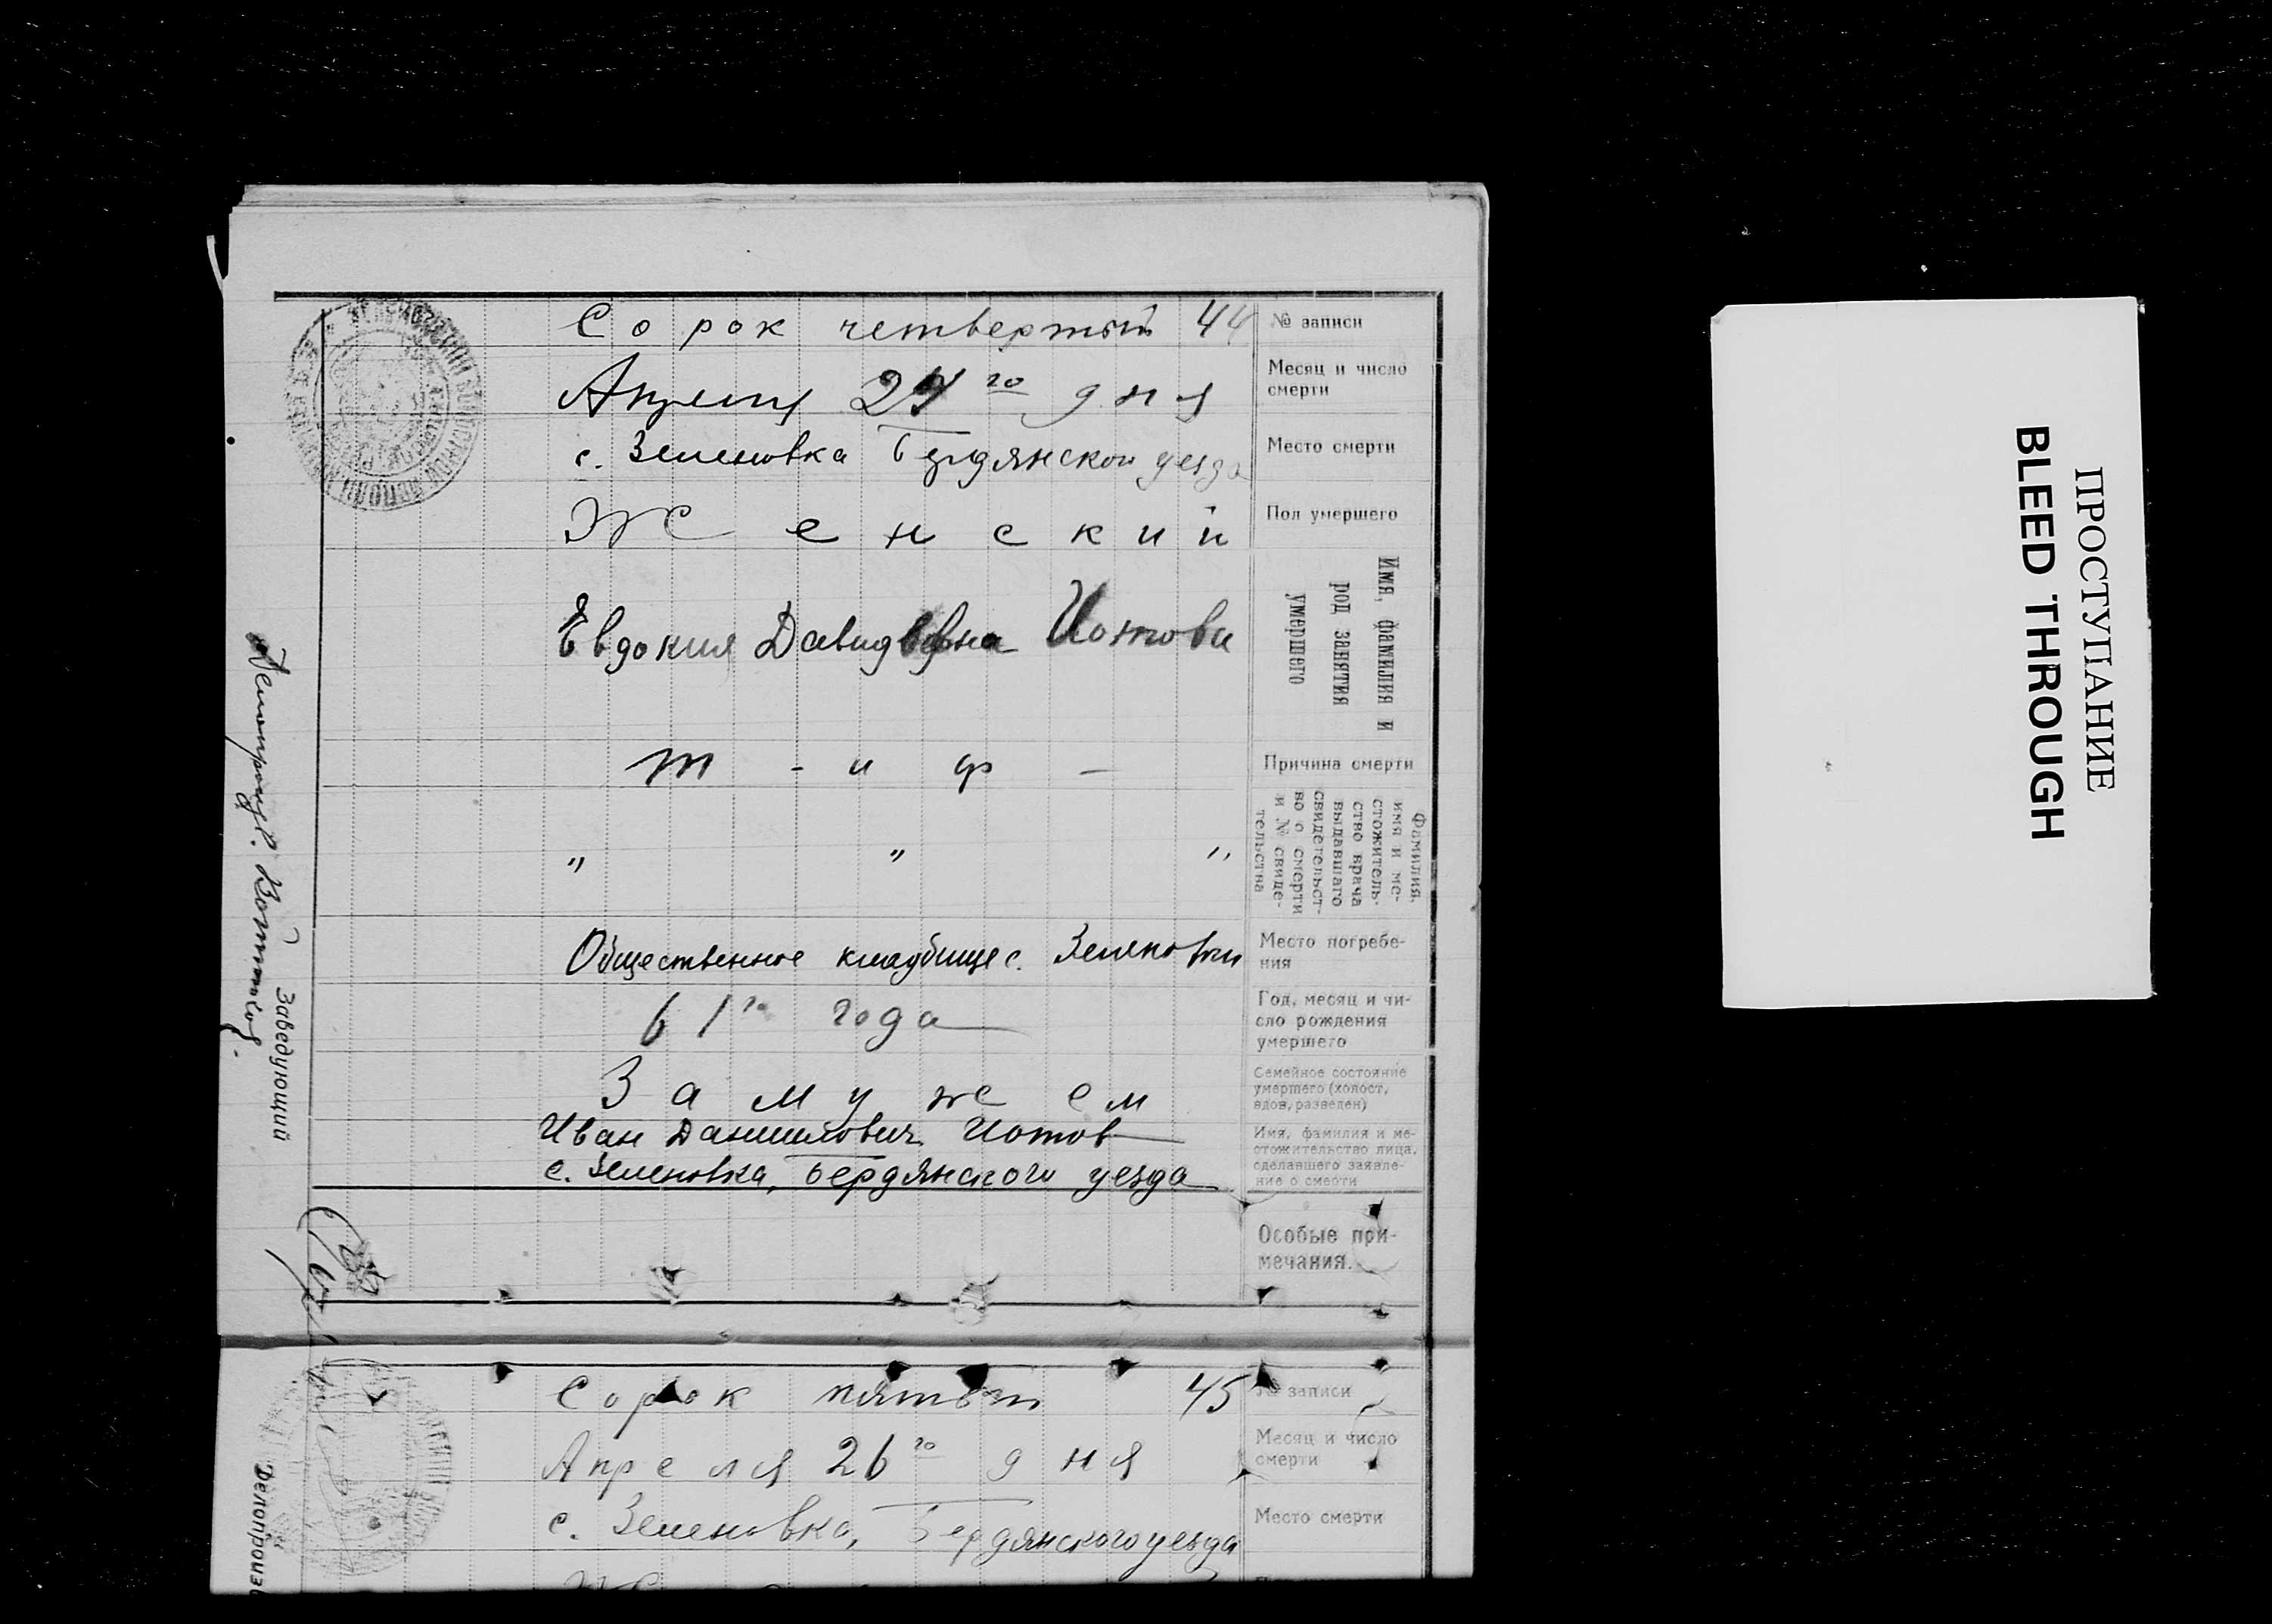 Сорок четвертый 44
№ записи
Апреля 24го дня
Месяц и число
смерти
с. Зеленовка Бердянского уезда
Место смерти
Женский
Пол умершего
Евдокия Давидовна Иотова
Имя, фамилия и
род занятия
умершего
т - и ф -
Причина смерти
" " "
Фамилия,
имя и ме-
стожитель-
ство врача
выдавшаго
свидетельст-
во о смерти
и № свиде-
тельства
Общественное кладбище с. Зеленовки
Место погребе-
ния
61го года
Год, месяц и чи-
сло рождения
умершего
Замужем
Семейное состояние
умершего (холост,
вдов, разведен)
Иван Даниилович Иотов
с. Зеленовка, Бердянского уезда
Имя, фамилия и ме-
стожительство лица,
сделавшего заявле-
ние о смерти
Особые при-
мечания.
Заведующий
Делопроизв.
Сорок пятый 45
№ записи
Апреля 26го дня
Месяц и число
смерти
с. Зеленовка, Бердянского уезда
Место смерти
Делопроизв
ПРОСТУПАНИЕ
BLEED THROUGH